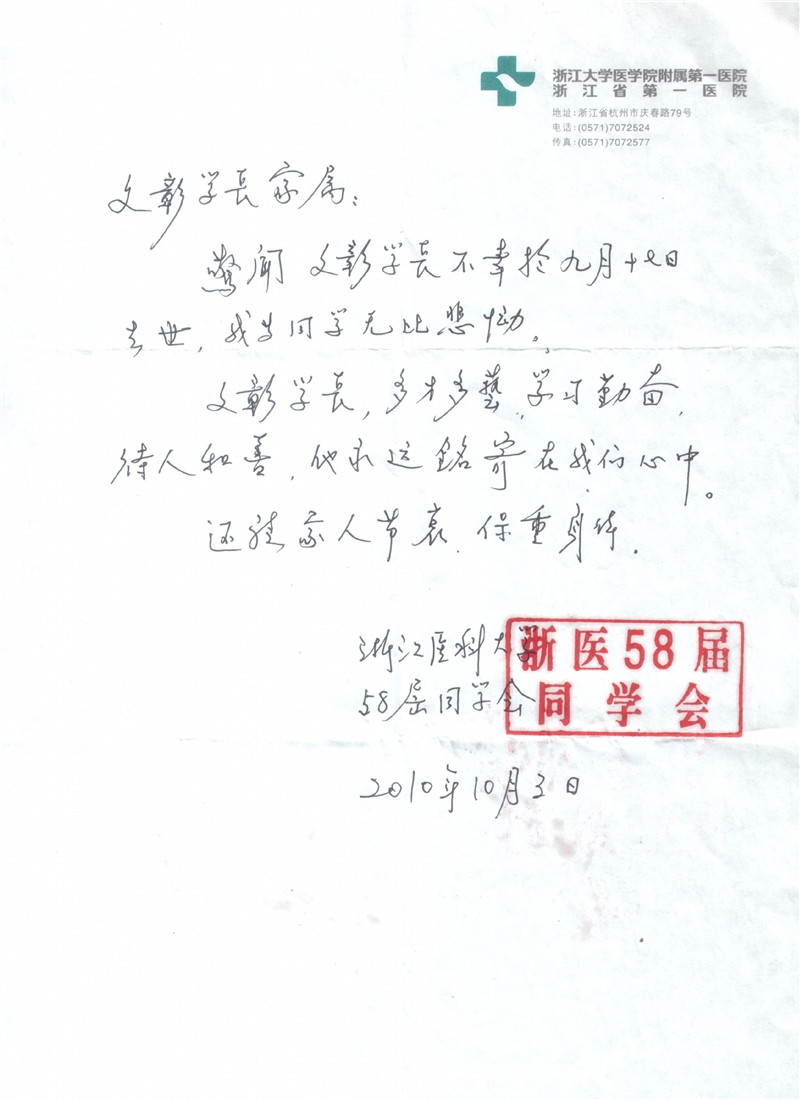 浙江大学医学院附属第一医院
浙江省第一医院
地址:浙江省杭州市庆春路79号
电话:(0571)7072524
传真:(0571)7072577
文彰学長家属:
驚闻 文彰学長不幸於九月十七日
去世,我与同学无比悲恸。
文彰学長,多才多藝,学习勤奋,
待人和善,他永远銘寄在我们心中。
还望家人节哀.保重身体.
浙江医科大学
58届同学会
浙医58届
同学会
2010年10月3日